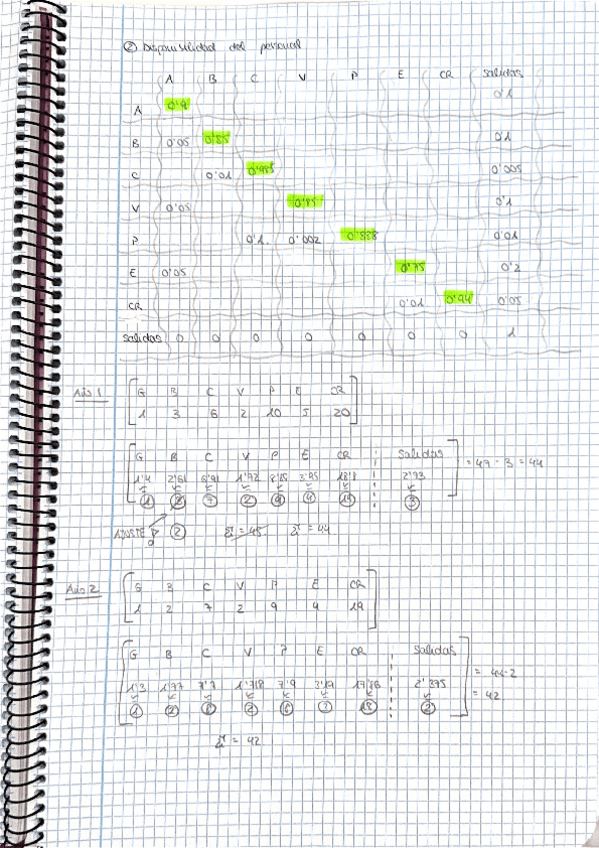 ② Disponibilidad del personal
A B C V P E CR Salidas
A 0'9 0'1
B 0'05 0'85 0'1
C 0'01 0'985 0'005
V 0'05 0'85 0'1
P 0'1 0'002 0'888 0'01
E 0'05 0'75 0'2
CR 0'01 0'94 0'05
Salidas 0 0 0 0 0 0 0 1
Año 1
G B C V P E CR
1 3 6 2 10 5 20
G B C V P E CR Salidas
1'4 2'61 6'91 1'72 3'95 18'8 2'93 = 47 - 3 = 44
AJUSTE ② Σ = 45 Σ = 44
Año 2
G B C V P E CR
1 2 7 2 9 4 19
G B C V P E CR Salidas
1'3 1'77 7'7 1'718 7'9 3'19 17'86 2'375 = 44-2
② ② = 42
Σ = 42